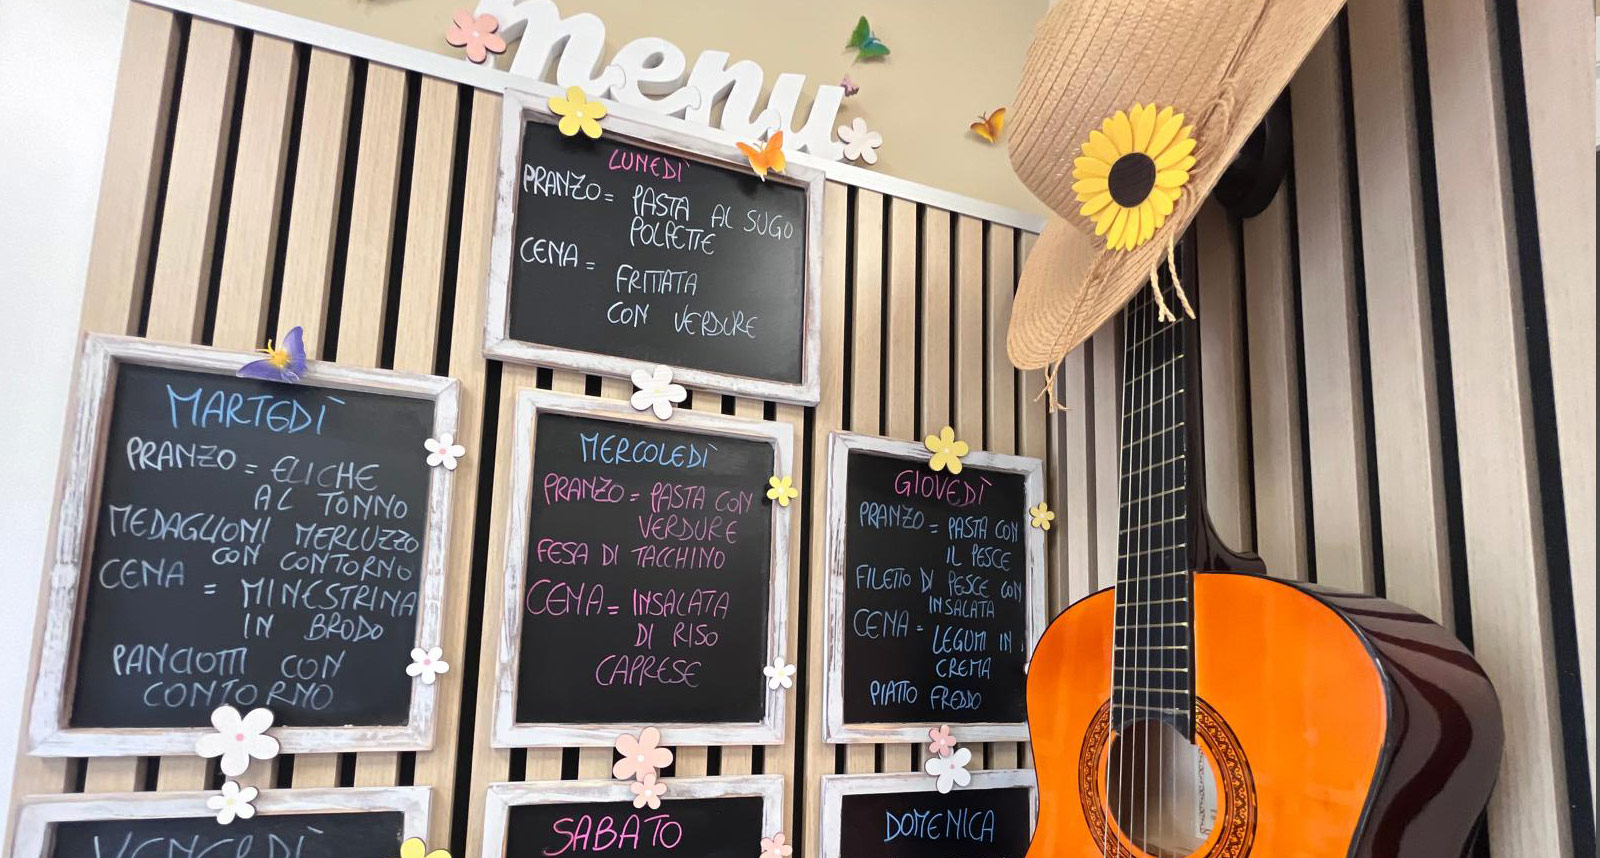 menu
LUNEDÌ
PRANZO = PASTA AL SUGO
POLPETTE
CENA = FRITTATA
CON VERDURE
MARTEDÌ
PRANZO = ELICHE
AL TONNO
MEDAGLIONI MERLUZZO
CON CONTORNO
CENA = MINESTRINA
IN BRODO
PANCIOTTI CON
CONTORNO
MERCOLEDÌ
PRANZO = PASTA CON
VERDURE
FESA DI TACCHINO
CENA = INSALATA
DI RISO
CAPRESE
GIOVEDÌ
PRANZO = PASTA CON
IL PESCE
FILETTO DI PESCE CON
INSALATA
CENA = LEGUMI IN
CREMA
PIATTO FREDDO
VENERDÌ
SABATO
DOMENICA